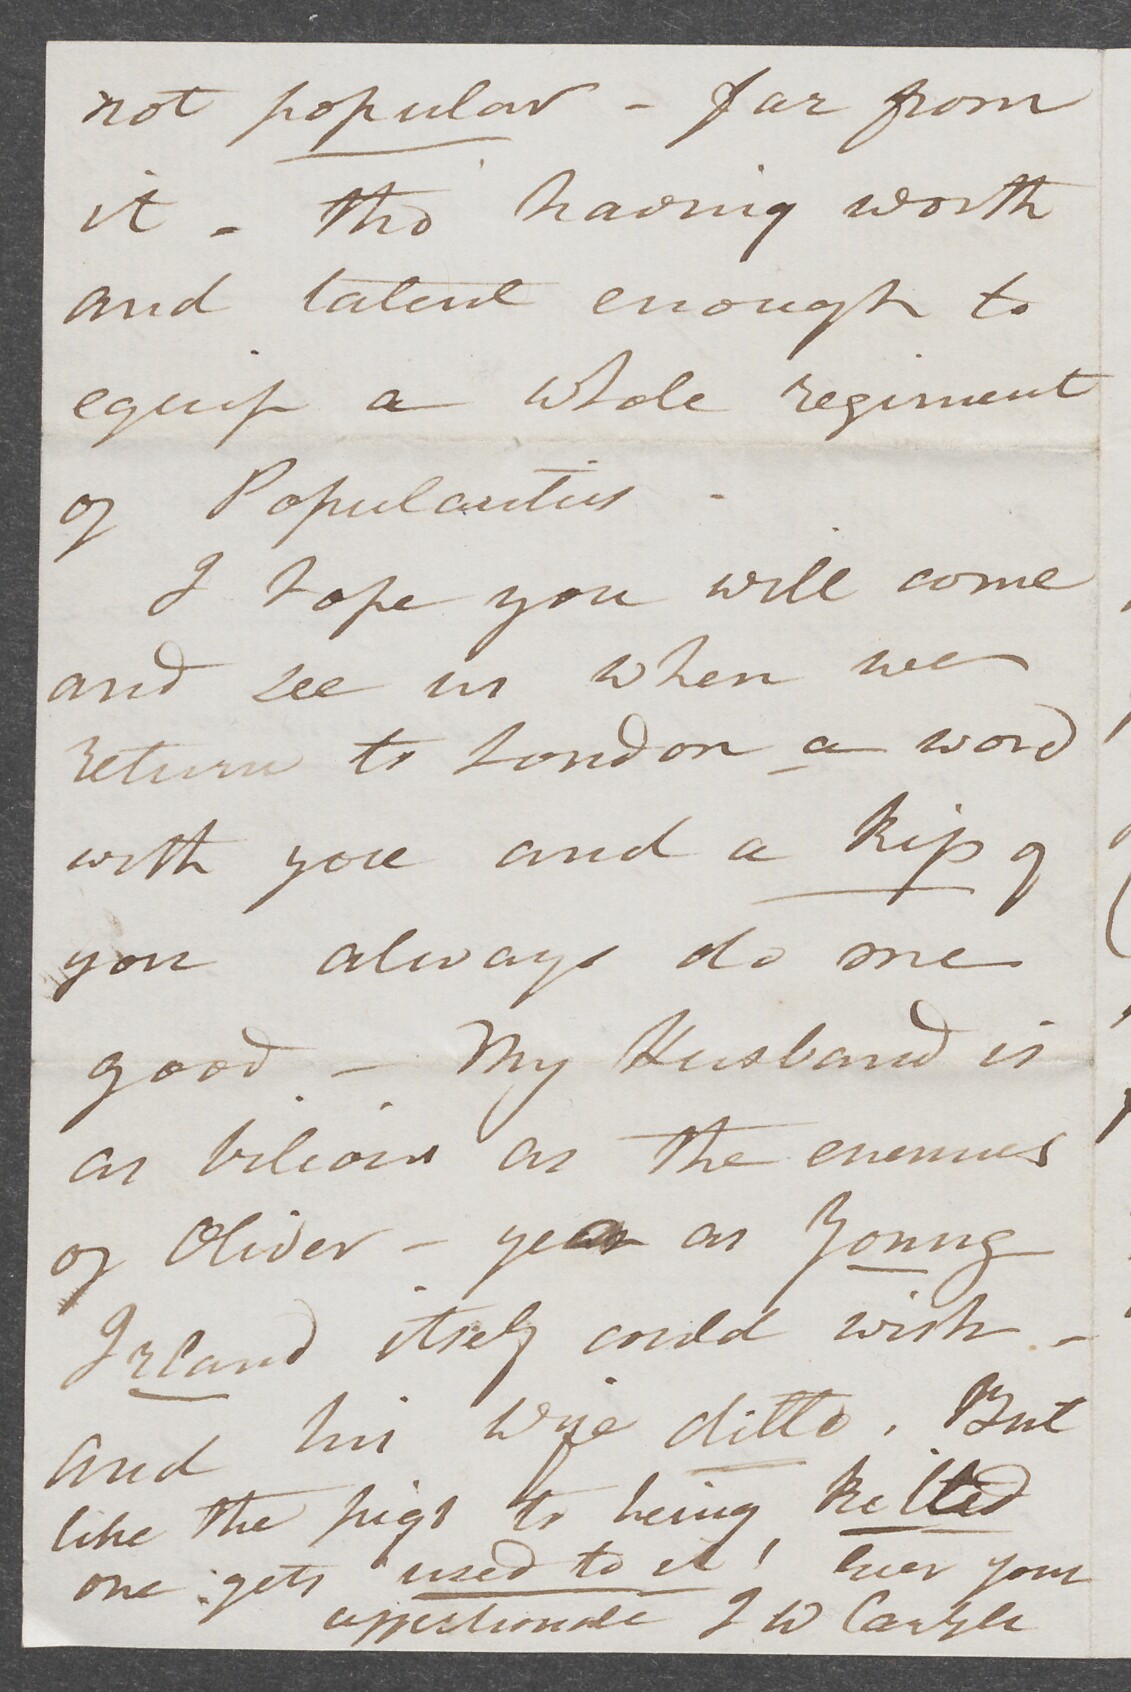 not popular - far from
it - tho' having worth
and talent enough to
equip a whole regiment
of Popularities -
I hope you will come
and see us when we
return to London a word
with you and a kiss of
you always do me
good - My Husband is
as bilious as the enemies
of Oliver - yea as Young
Ireland itself could wish -
and his wife ditto. But
like the pigs to being killed
one gets used to it! Ever your
affectionate J W Carlyle